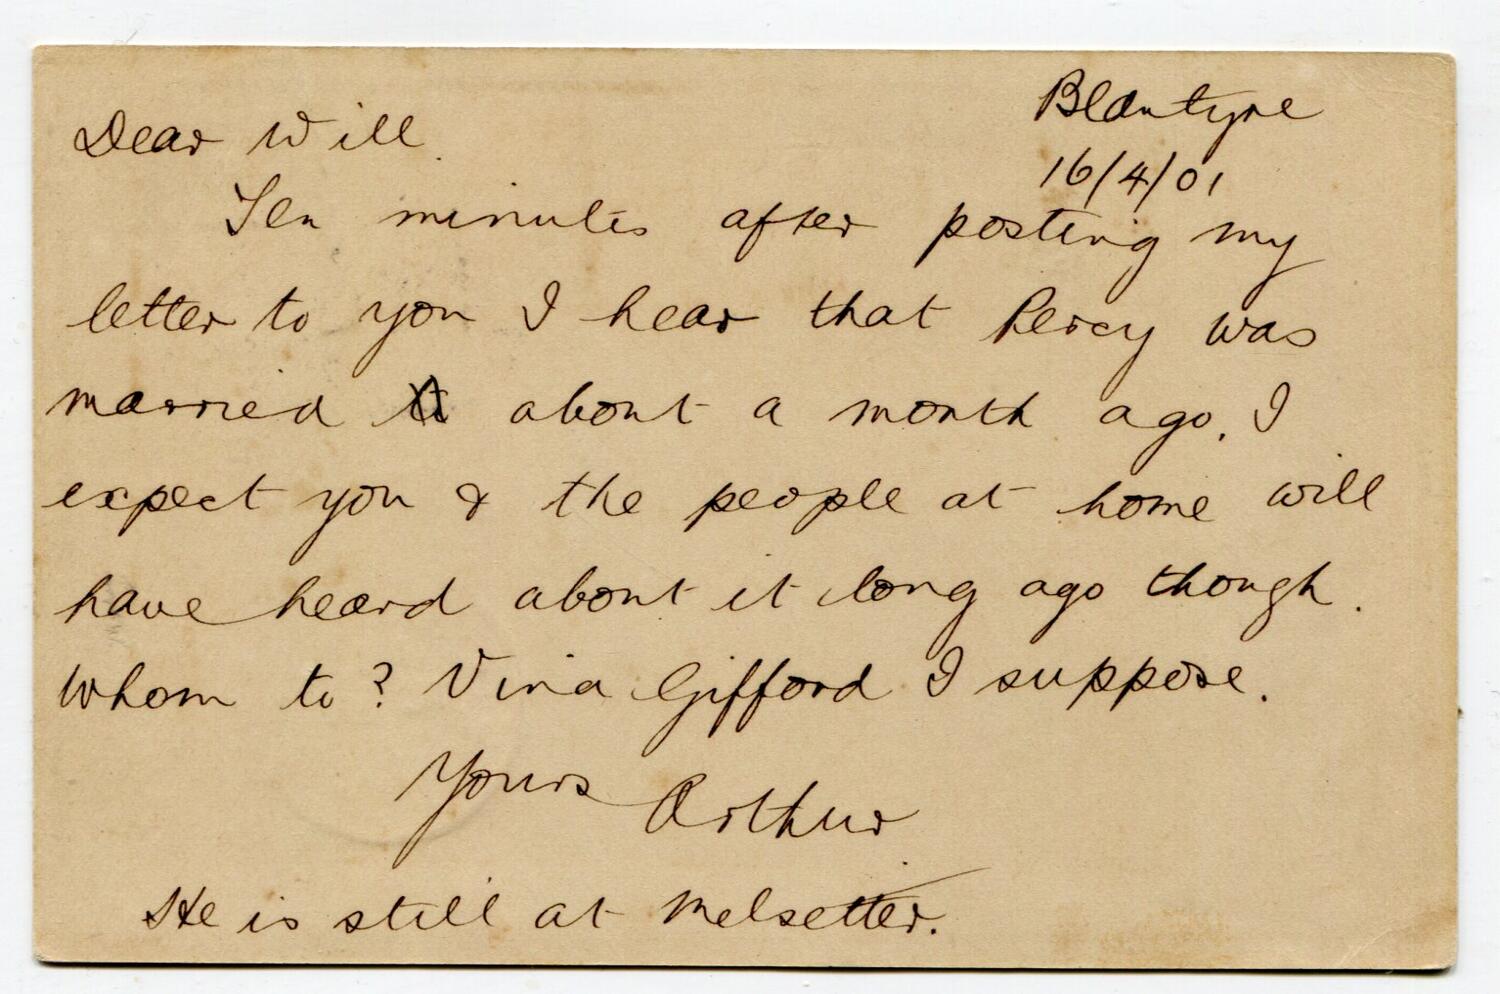 Blantyre
16/4/01
Dear Will
Ten minutes after posting my
letter to you I hear that Percy was
married about a month ago. I
expect you & the people at home will
have heard about it long ago though.
Whom to? Vina Gifford I suppose.
Yours Arthur
He is still at Melsetter.